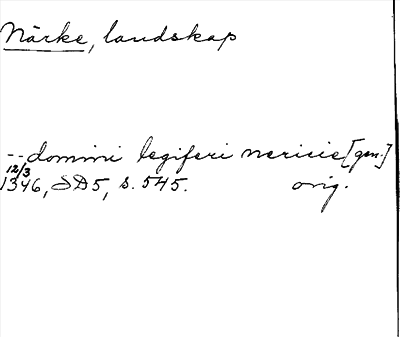 Närke, landskap
-- domini legiferi nericie [gen.]
12/3
1346, SD5, s. 545. orig.